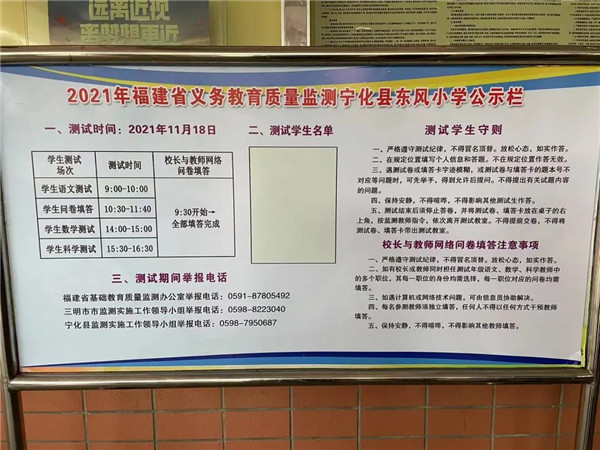 远离近视
2021年福建省义务教育质量监测宁化县东风小学公示栏
一、测试时间：2021年11月18日
学生测试场次 测试时间 校长与教师网络问卷填答
学生语文测试 9:00-10:00
学生问卷填答 10:30-11:40
学生数学测试 14:00-15:00
学生科学测试 15:30-16:30
9:30开始→
全部填答完成
二、测试学生名单
三、测试期间举报电话
福建省基础教育质量监测办公室举报电话：0591-87805492
三明市市监测实施工作领导小组举报电话：0598-8223040
宁化县监测实施工作领导小组举报电话：0598-7950687
测试学生守则
一、严格遵守测试纪律，不得冒名顶替。放松心态，如实作答。
二、在规定位置填写个人信息和答题。不在规定位置作答无效。
三、遇测试卷或填答卡字迹模糊，或测试卷与填答卡的题本号不
对应等问题时，可先举手，得到允许后提问。不得提出有关试题内容
的问题。
四、保持安静，不得喧哗，不得影响其他测试生作答。
五、测试结束后须停止答卷，并将测试卷、填答卡放在桌子的右
上角，按监测教师指令，依次离开测试教室。不得提前交卷，不得将
测试卷、填答卡带出测试教室。
校长与教师网络问卷填答注意事项
一、严格遵守测试纪律，不得冒名顶替。放松心态，如实作答。
二、如有校长或教师同时担任测试年级语文、数学、科学教师中
的多个职位，其每一职位的身份均需选择，每一职位对应的问卷均需
填答。
三、如遇计算机或网络技术问题，可由信息员协助解决。
四、每名参测教师须独立填答，任何人不得以任何方式干预教师
填答。
五、保持安静，不得喧哗，不得影响其他教师填答。